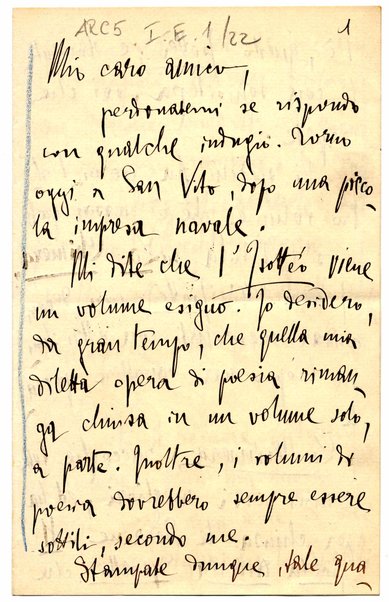 ARC5 I.E. 1/22 1
Mio caro amico,
perdonatemi se rispondo
con qualche indugio. Torno
oggi a San Vito, dopo una picco-
la impresa navale.
Mi dite che l'Isottèo viene
un volume esiguo. Io desidero,
da gran tempo, che quella mia
diletta opera di poesia riman-
ga chiusa in un volume solo,
a parte. Inoltre, i volumi di
poesia dovrebbero sempre essere
sottili, secondo me.
Stampate dunque, tale qua